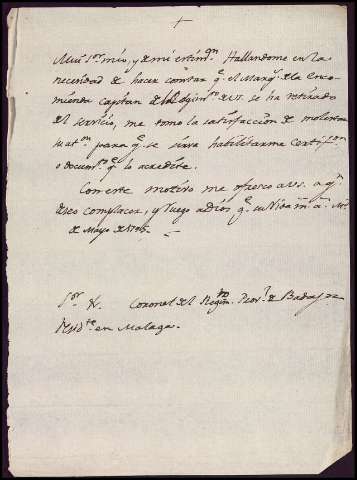 +
Muy S.or mio, y de mi estim.on Hallandome en la
necesidad de hacer constar q.e el Marq.s de la Enco-
mienda Capitan de el Regim.to de VS. se ha retirado
del servicio, me tomo la satisfaccion de molestar
su at.on para q.e se sirva habilitarme Certif.on
o docum.to q.e lo acredite.
Con este motivo me ofresco a VS. a q.n
deseo complacer, y ruego a Dios g.e su Vida m.s a.s
de Mayo de
S.or D. Coronel del Regim.to Prov.l de Badajoz
Resid.te en Malaga.